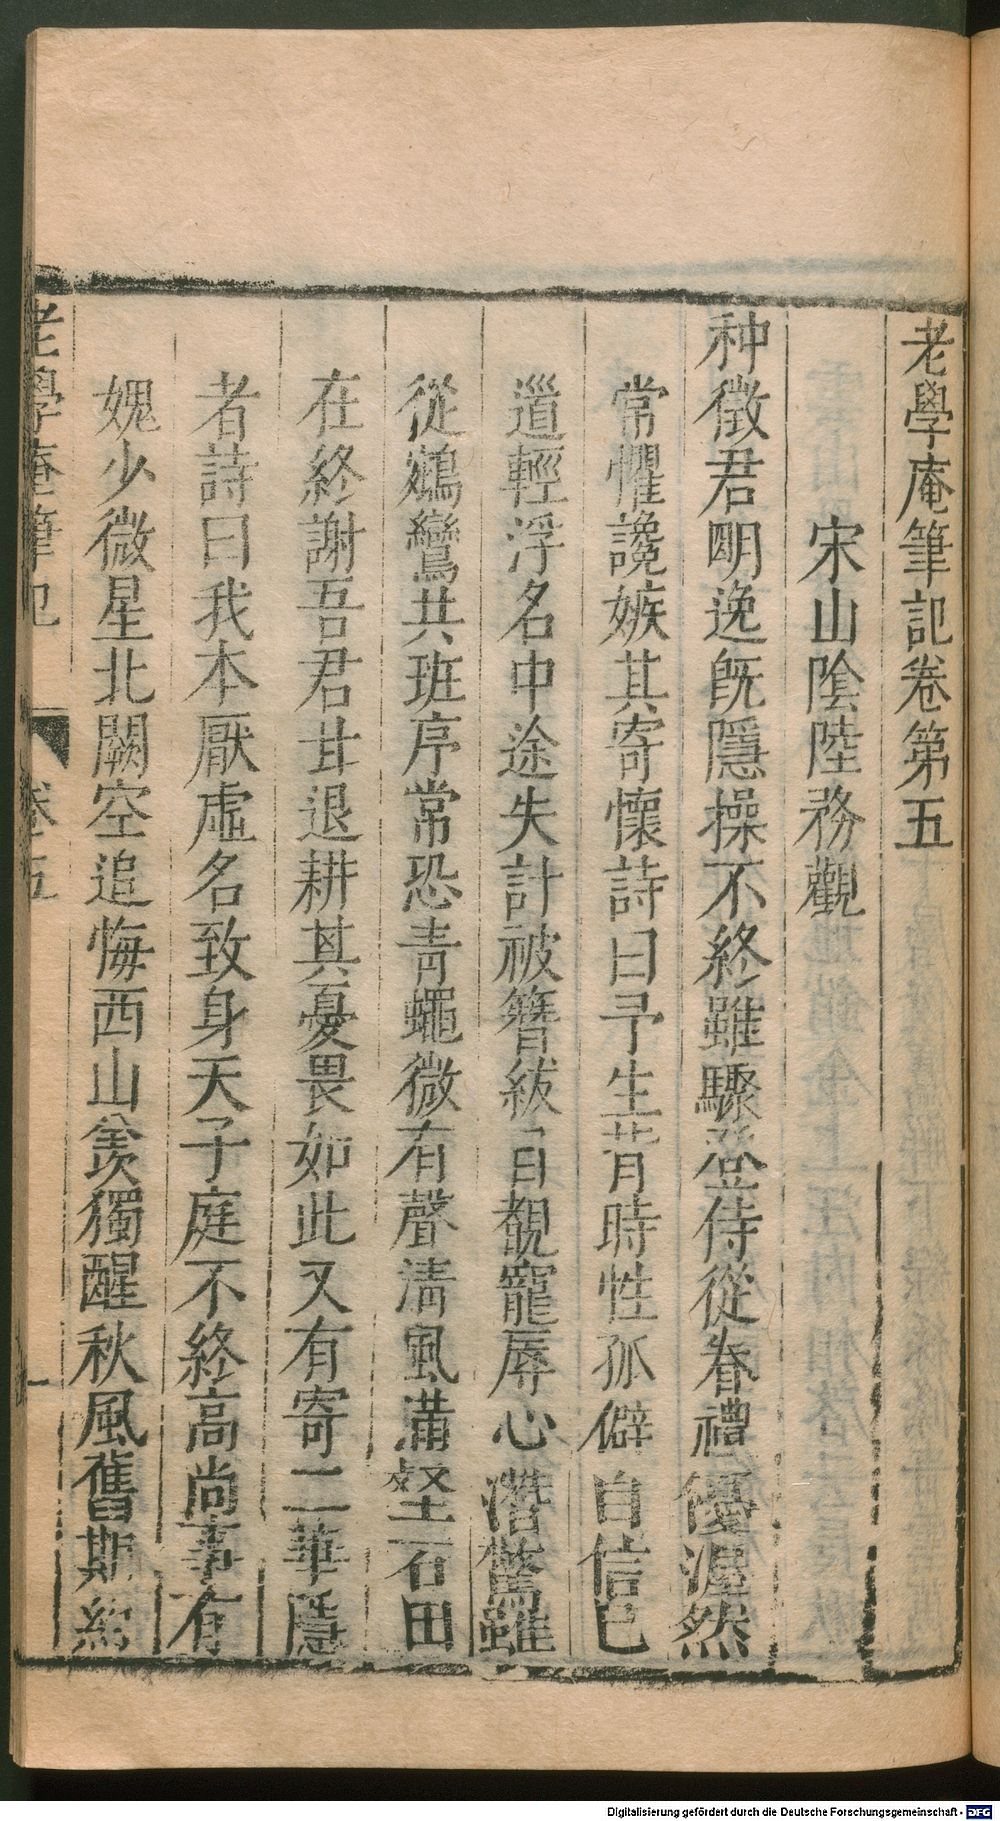 老學庵筆記卷第五
宋山陰陸務觀
种徵君明逸旣隱操不終雖驟登侍從眷禮優渥然
常懼讒嫉其寄懷詩曰予生背時性孤僻自信已
道輕浮名中途失計被簪紱目覩寵辱心潛驚雖
從鵷鸞共班序常恐青蠅微有聲淸風滿壑石田
在終謝吾君甘退耕其憂畏如此又有寄二華隱
者詩曰我本厭虛名致身天子庭不終高尚事有
媿少微星北闕空追悔西山羨獨醒秋風舊期約
老學庵筆記 卷五 一
Digitalisierung gefördert durch die Deutsche Forschungsgemeinschaft - DFG